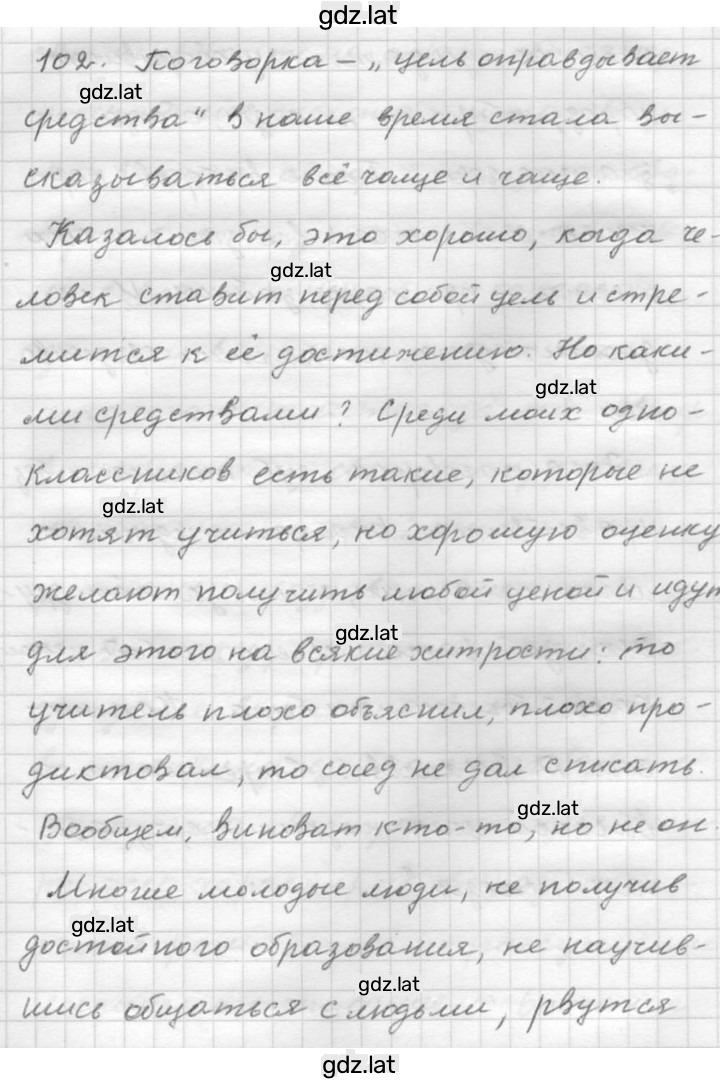 gdz.lat
102. Поговорка – „цель оправдывает
gdz.lat
средства“ в наше время стала вы-
сказываться всё чаще и чаще.
Казалось бы, это хорошо, когда че-
gdz.lat
ловек ставит перед собой цель и стре-
мится к её достижению. Но каки-
gdz.lat
ми средствами? Среди моих одно-
классников есть такие, которые не
gdz.lat
хотят учиться, но хорошую оценку
желают получить любой ценой и идут
gdz.lat
для этого на всякие хитрости: то
учитель плохо объяснил, плохо про-
диктовал, то сосед не дал списать.
gdz.lat
Вообщем, виноват кто-то, но не он.
Многие молодые люди, не получив
gdz.lat
достойного образования, не научив-
gdz.lat
шись общаться с людьми, рвутся
gdz.lat